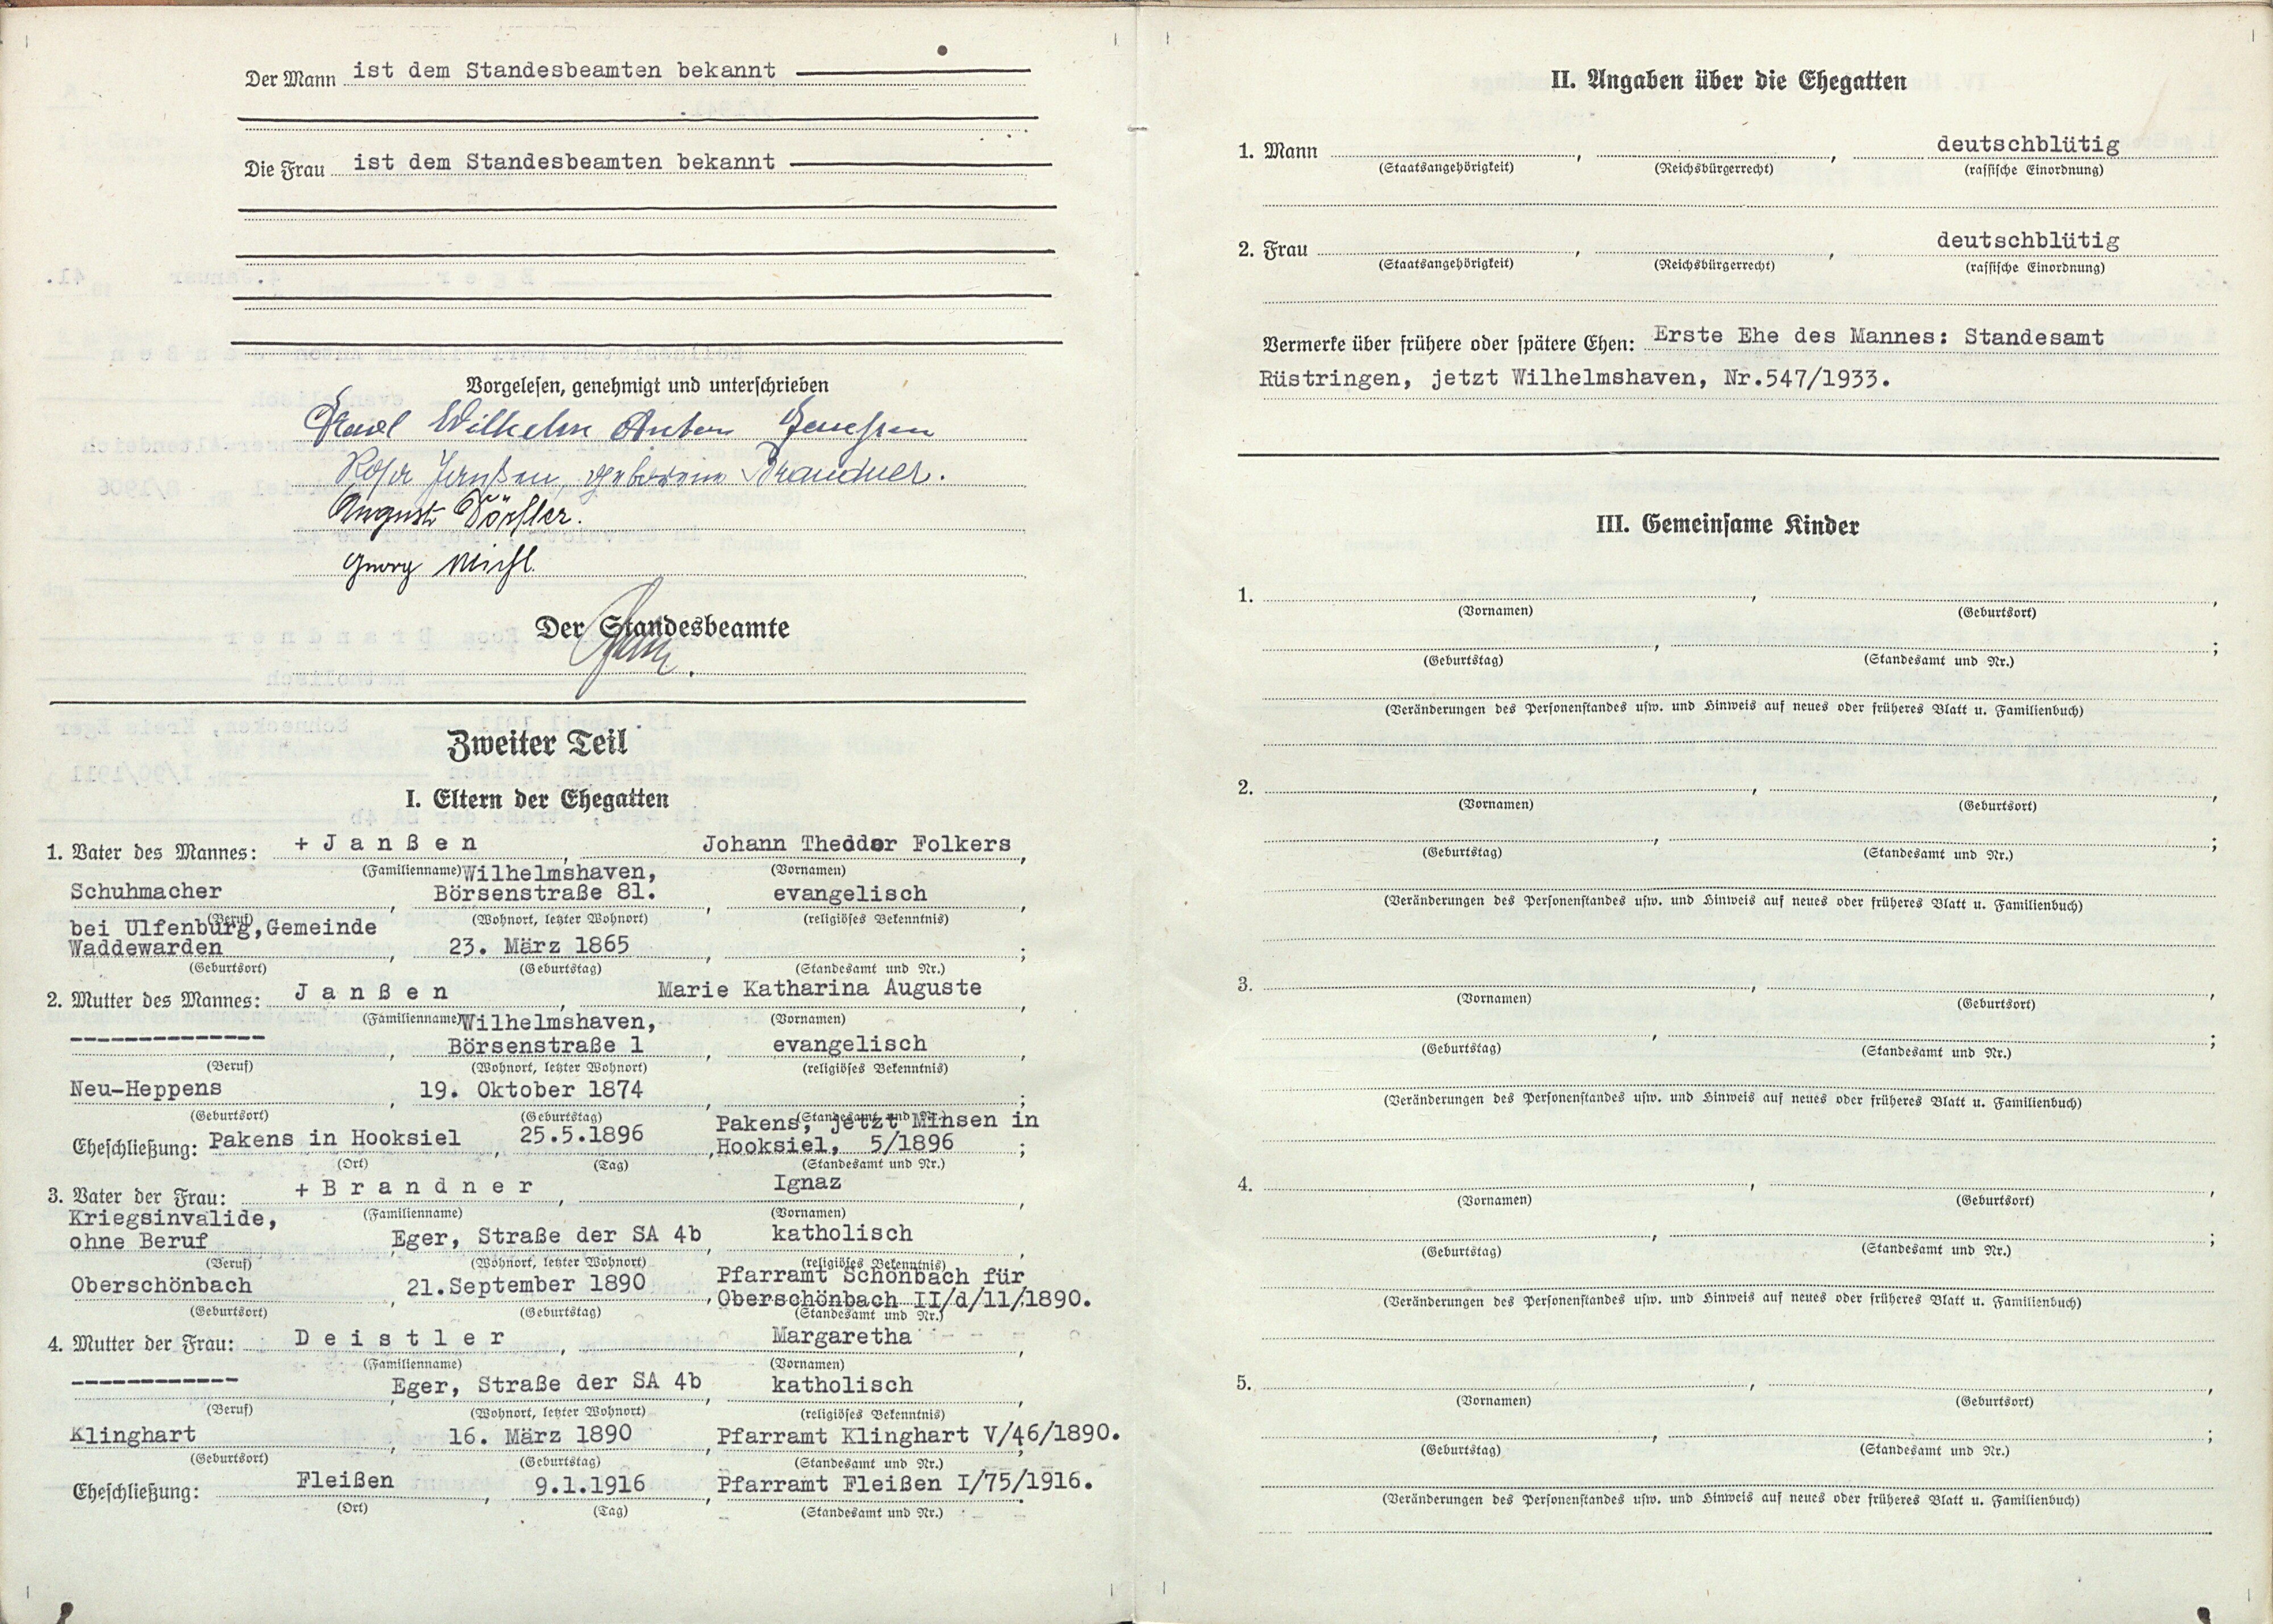 Der Mann ist dem Standesbeamten bekannt
Die Frau ist dem Standesbeamten bekannt
Vorgelesen, genehmigt und unterschrieben
Karl Wilhelm Anton Janßen
Rosa Janßen, geborene Brandner.
August Dörfler.
Georg
Der Standesbeamte
Zweiter Teil
I. Eltern der Ehegatten
1. Vater des Mannes: + J a n ß e n , Johann Theodor Folkers ,
(Familienname) (Vornamen)
Wilhelmshaven,
Schuhmacher , Börsenstraße 81. , evangelisch ,
(Beruf) (Wohnort, letzter Wohnort) (religiöses Bekenntnis)
bei Ulfenburg, Gemeinde
Waddewarden , 23. März 1865 , ;
(Geburtsort) (Geburtstag) (Standesamt und Nr.)
2. Mutter des Mannes: J a n ß e n , Marie Katharina Auguste ,
(Familienname) (Vornamen)
Wilhelmshaven,
-------------- , Börsenstraße 1 , evangelisch ,
(Beruf) (Wohnort, letzter Wohnort) (religiöses Bekenntnis)
Neu-Heppens , 19. Oktober 1874 , ;
(Geburtsort) (Geburtstag) (Standesamt und Nr.)
Pakens, jetzt Minsen in
Eheschließung: Pakens in Hooksiel , 25.5.1896 , Hooksiel, 5/1896 ;
(Ort) (Tag) (Standesamt und Nr.)
3. Vater der Frau: + B r a n d n e r , Ignaz ,
(Familienname) (Vornamen)
Kriegsinvalide,
ohne Beruf , Eger, Straße der SA 4b , katholisch ,
(Beruf) (Wohnort, letzter Wohnort) (religiöses Bekenntnis)
Pfarramt Schönbach für
Oberschönbach , 21.September 1890 , Oberschönbach II/d/11/1890.
(Geburtsort) (Geburtstag) (Standesamt und Nr.)
4. Mutter der Frau: D e i s t l e r , Margaretha ,
(Familienname) (Vornamen)
------------ , Eger, Straße der SA 4b , katholisch ,
(Beruf) (Wohnort, letzter Wohnort) (religiöses Bekenntnis)
Klinghart , 16. März 1890 , Pfarramt Klinghart V/46/1890.
(Geburtsort) (Geburtstag) (Standesamt und Nr.)
Eheschließung: Fleißen , 9.1.1916 , Pfarramt Fleißen I/75/1916.
(Ort) (Tag) (Standesamt und Nr.)
II. Angaben über die Ehegatten
1. Mann , , deutschblütig
(Staatsangehörigkeit) (Reichsbürgerrecht) (rassische Einordnung)
2. Frau , , deutschblütig
(Staatsangehörigkeit) (Reichsbürgerrecht) (rassische Einordnung)
Vermerke über frühere oder spätere Ehen: Erste Ehe des Mannes: Standesamt
Rüstringen, jetzt Wilhelmshaven, Nr.547/1933.
III. Gemeinsame Kinder
1. , ,
(Vornamen) (Geburtsort)
, ;
(Geburtstag) (Standesamt und Nr.)
(Veränderungen des Personenstandes usw. und Hinweis auf neues oder früheres Blatt u. Familienbuch)
2. , ,
(Vornamen) (Geburtsort)
, ;
(Geburtstag) (Standesamt und Nr.)
(Veränderungen des Personenstandes usw. und Hinweis auf neues oder früheres Blatt u. Familienbuch)
3. , ,
(Vornamen) (Geburtsort)
, ;
(Geburtstag) (Standesamt und Nr.)
(Veränderungen des Personenstandes usw. und Hinweis auf neues oder früheres Blatt u. Familienbuch)
4. , ,
(Vornamen) (Geburtsort)
, ;
(Geburtstag) (Standesamt und Nr.)
(Veränderungen des Personenstandes usw. und Hinweis auf neues oder früheres Blatt u. Familienbuch)
5. , ,
(Vornamen) (Geburtsort)
, ;
(Geburtstag) (Standesamt und Nr.)
(Veränderungen des Personenstandes usw. und Hinweis auf neues oder früheres Blatt u. Familienbuch)